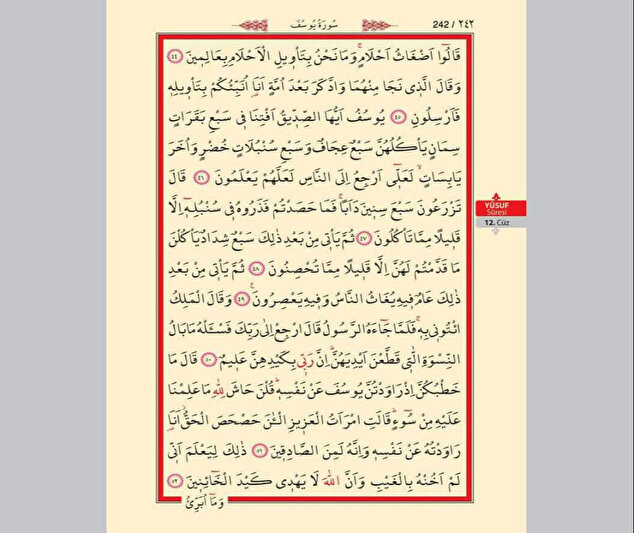 242 / ٢٤٢
سُورَةُ يُوسُفَ
قَالُٓوا اَضْغَاثُ اَحْلَامٍۚ وَمَا نَحْنُ بِتَأْو۪يلِ الْاَحْلَامِ بِعَالِم۪ينَ ٤٤
وَقَالَ الَّذ۪ي نَجَا مِنْهُمَا وَادَّكَرَ بَعْدَ اُمَّةٍ اَنَا۬ اُنَبِّئُكُمْ بِتَأْو۪يلِه۪
فَاَرْسِلُونِ ٤٥ يُوسُفُ اَيُّهَا الصِّدّ۪يقُ اَفْتِنَا ف۪ي سَبْعِ بَقَرَاتٍ
سِمَانٍ يَأْكُلُهُنَّ سَبْعٌ عِجَافٌ وَسَبْعِ سُنْبُلَاتٍ خُضْرٍ وَاُخَرَ
يَابِسَاتٍۙ لَعَلّ۪ٓي اَرْجِعُ اِلَى النَّاسِ لَعَلَّهُمْ يَعْلَمُونَ ٤٦ قَالَ
تَزْرَعُونَ سَبْعَ سِن۪ينَ دَاَبًاۚ فَمَا حَصَدْتُمْ فَذَرُوهُ ف۪ي سُنْبُلِه۪ٓ اِلَّا
قَل۪يلًا مِمَّا تَأْكُلُونَ ٤٧ ثُمَّ يَأْت۪ي مِنْ بَعْدِ ذٰلِكَ سَبْعٌ شِدَادٌ يَأْكُلْنَ
مَا قَدَّمْتُمْ لَهُنَّ اِلَّا قَل۪يلًا مِمَّا تُحْصِنُونَ ٤٨ ثُمَّ يَأْت۪ي مِنْ بَعْدِ
ذٰلِكَ عَامٌ ف۪يهِ يُغَاثُ النَّاسُ وَف۪يهِ يَعْصِرُونَ۟ ٤٩ وَقَالَ الْمَلِكُ
ائْتُون۪ي بِه۪ۚ فَلَمَّا جَٓاءَهُ الرَّسُولُ قَالَ ارْجِعْ اِلٰى رَبِّكَ فَسْـَٔلْهُ مَا بَالُ
النِّسْوَةِ الّٰت۪ي قَطَّعْنَ اَيْدِيَهُنَّۜ اِنَّ رَبّ۪ي بِكَيْدِهِنَّ عَل۪يمٌ ٥٠ قَالَ مَا
خَطْبُكُنَّ اِذْ رَاوَدْتُنَّ يُوسُفَ عَنْ نَفْسِه۪ۜ قُلْنَ حَاشَ لِلّٰهِ مَا عَلِمْنَا
عَلَيْهِ مِنْ سُٓوءٍۜ قَالَتِ امْرَاَتُ الْعَز۪يزِ الْـٰٔنَ حَصْحَصَ الْحَقُّۘ اَنَا۬
رَاوَدْتُهُ عَنْ نَفْسِه۪ وَاِنَّهُ لَمِنَ الصَّادِق۪ينَ ٥١ ذٰلِكَ لِيَعْلَمَ اَنّ۪ي
لَمْ اَخُنْهُ بِالْغَيْبِ وَاَنَّ اللّٰهَ لَا يَهْد۪ي كَيْدَ الْخَٓائِن۪ينَ ٥٢
وَمَٓا اُبَرِّئُ
YÛSUF
Sûresi
12. Cüz